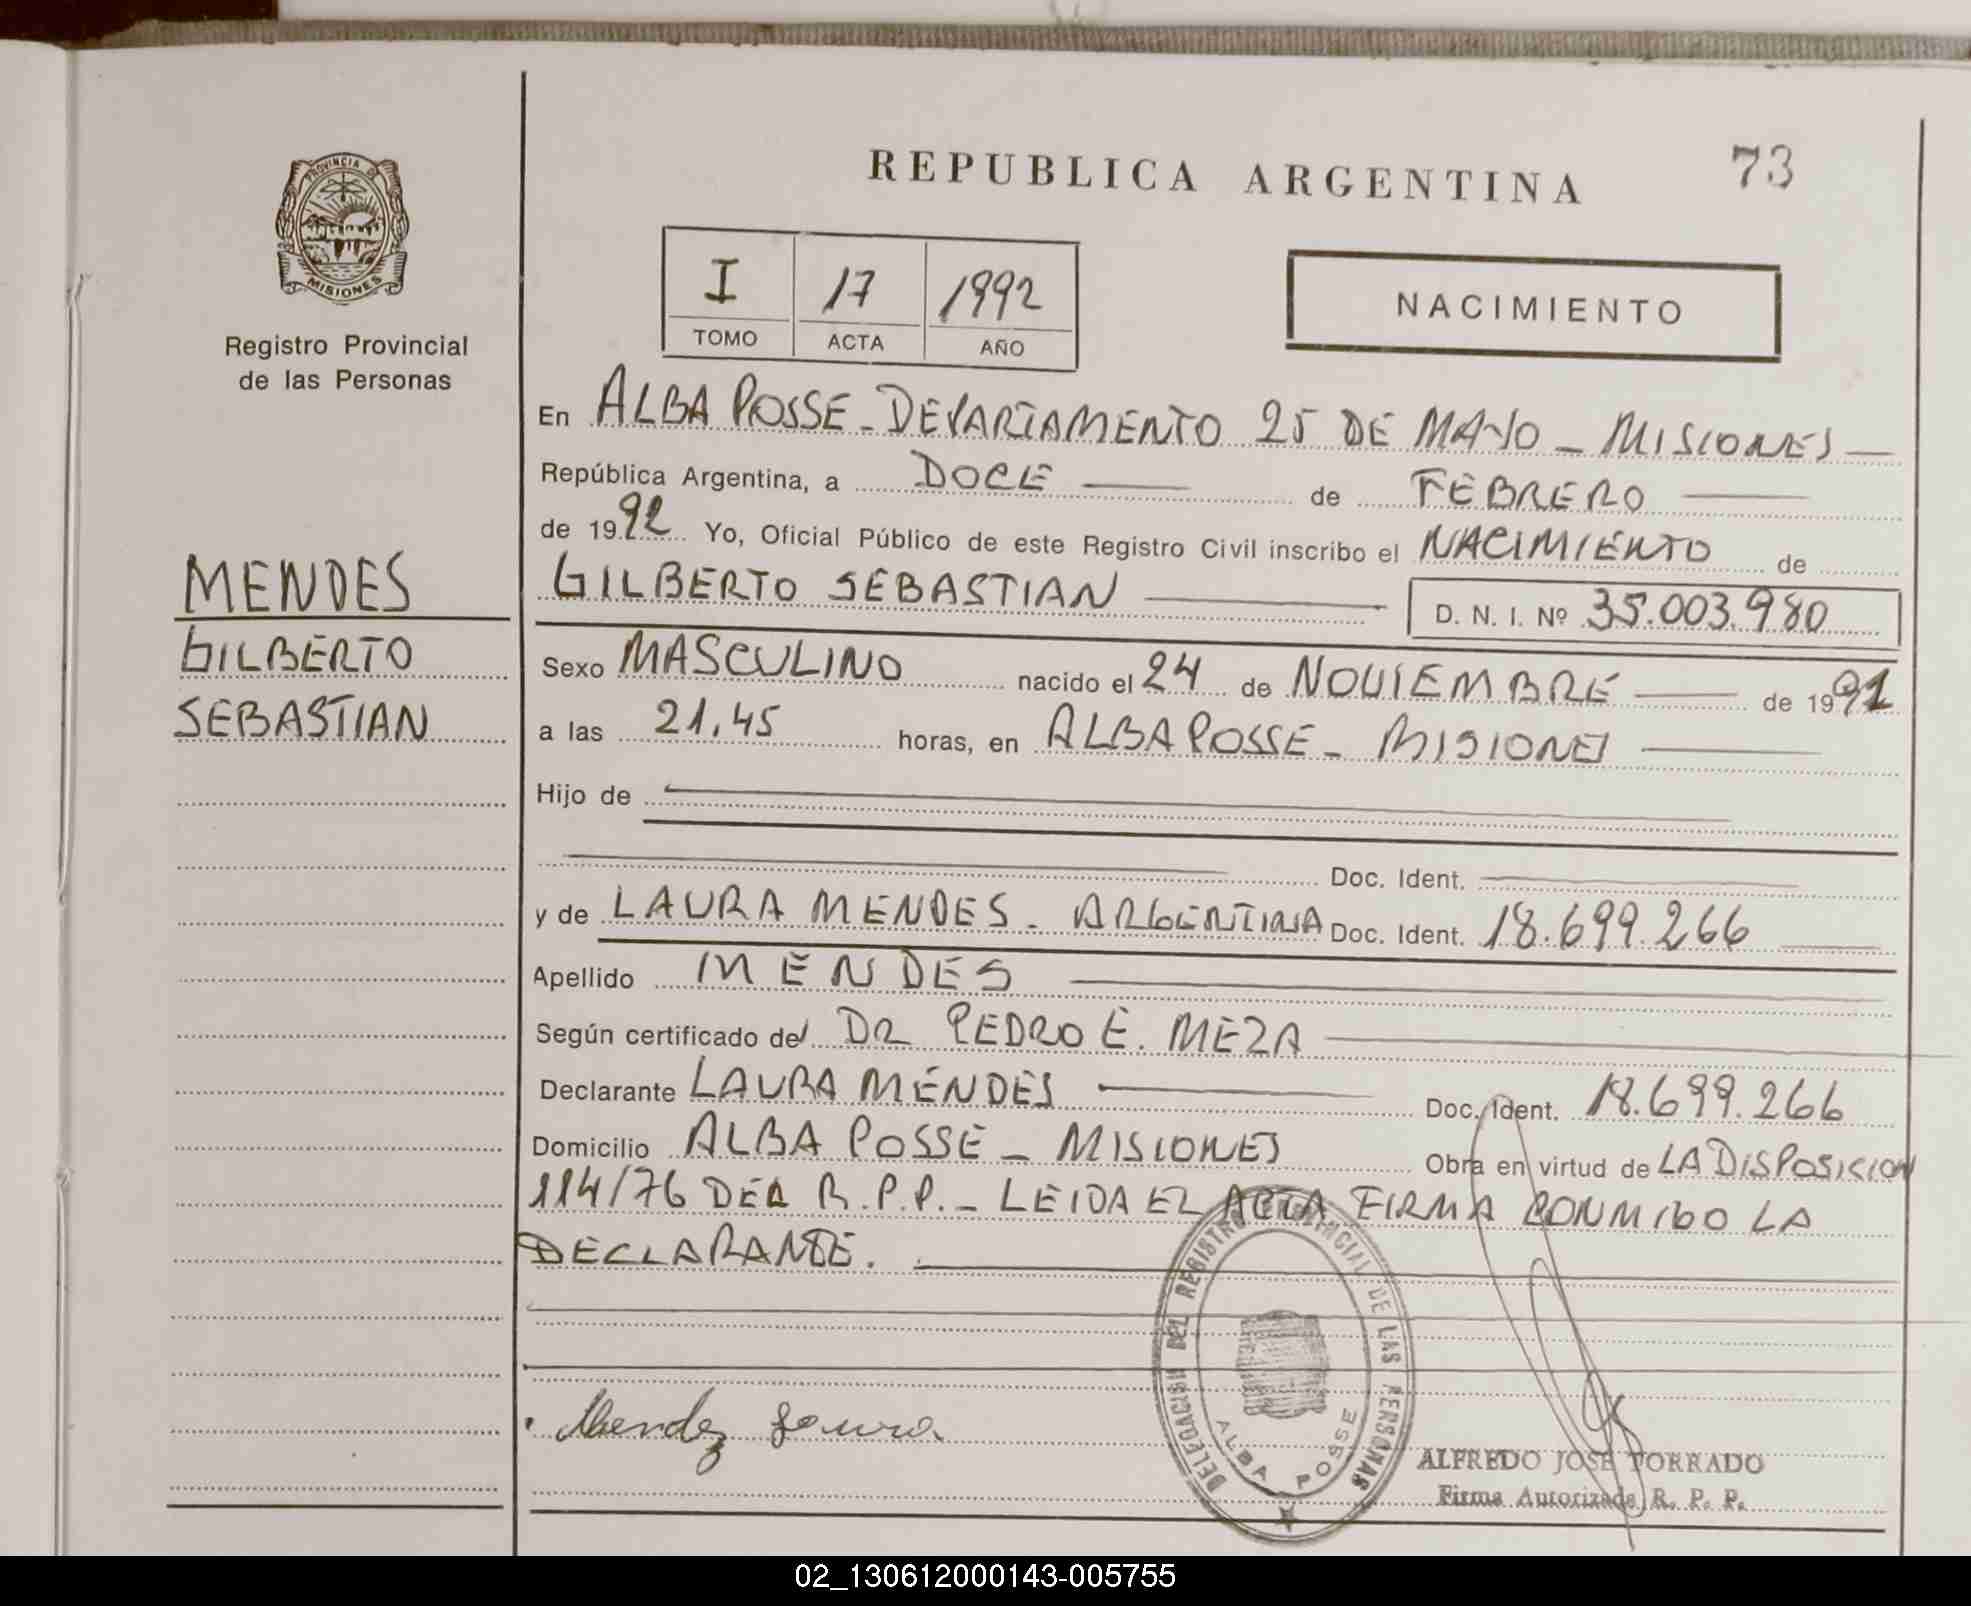 REPUBLICA ARGENTINA
73
PROVINCIA DE
MISIONES
Registro Provincial
de las Personas
I 17 1992
TOMO ACTA AÑO
NACIMIENTO
En ALBA POSSE - DEPARTAMENTO 25 DE MAYO - MISIONES
República Argentina, a DOCE de FEBRERO
de 1992 Yo, Oficial Público de este Registro Civil inscribo el NACIMIENTO de
GILBERTO SEBASTIAN D. N. I. Nº 35.003.980
MENDES
GILBERTO
SEBASTIAN
Sexo MASCULINO nacido el 24 de NOVIEMBRE de 1991
a las 21.45 horas, en ALBA POSSE - MISIONES
Hijo de
Doc. Ident.
y de LAURA MENDES - ARGENTINA Doc. Ident. 18.699.266
Apellido MENDES
Según certificado del DR PEDRO E. MEZA
Declarante LAURA MENDES Doc. Ident. 18.699.266
Domicilio ALBA POSSE - MISIONES Obra en virtud de LA DISPOSICION
114/76 DEL R.P.P. - LEIDA EL ACTA FIRMA CONMIGO LA
DECLARANTE.
DELEGACION DEL REGISTRO PROVINCIAL DE LAS PERSONAS
ALBA POSSE
Mendez Laura
ALFREDO JOSE TORRADO
Firma Autorizada R. P. P.
02_130612000143-005755